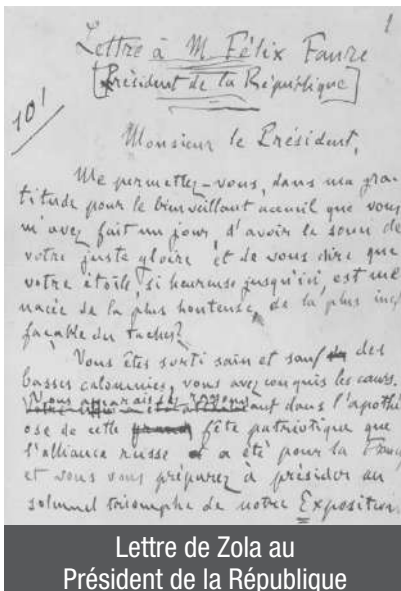 1
Lettre à M. Félix Faure
[Président de la République]
10!
Monsieur le Président,
Me permettez-vous, dans ma gra-
titude pour le bienveillant accueil que vous
m'avez fait un jour, d'avoir le souci de
votre juste gloire et de vous dire que
votre étoile, si heureuse jusqu'ici, est me
nacée de la plus honteuse, de la plus inef
façable des taches?
Vous êtes sorti sain et sauf des
basses calomnies, vous avez conquis les cœurs.
Vous apparaissez rayonnant dans l'apothé
ose de cette fête patriotique que
l'alliance russe a été pour la France
et vous vous préparez à présider au
solennel triomphe de notre Exposition
Lettre de Zola au
Président de la République